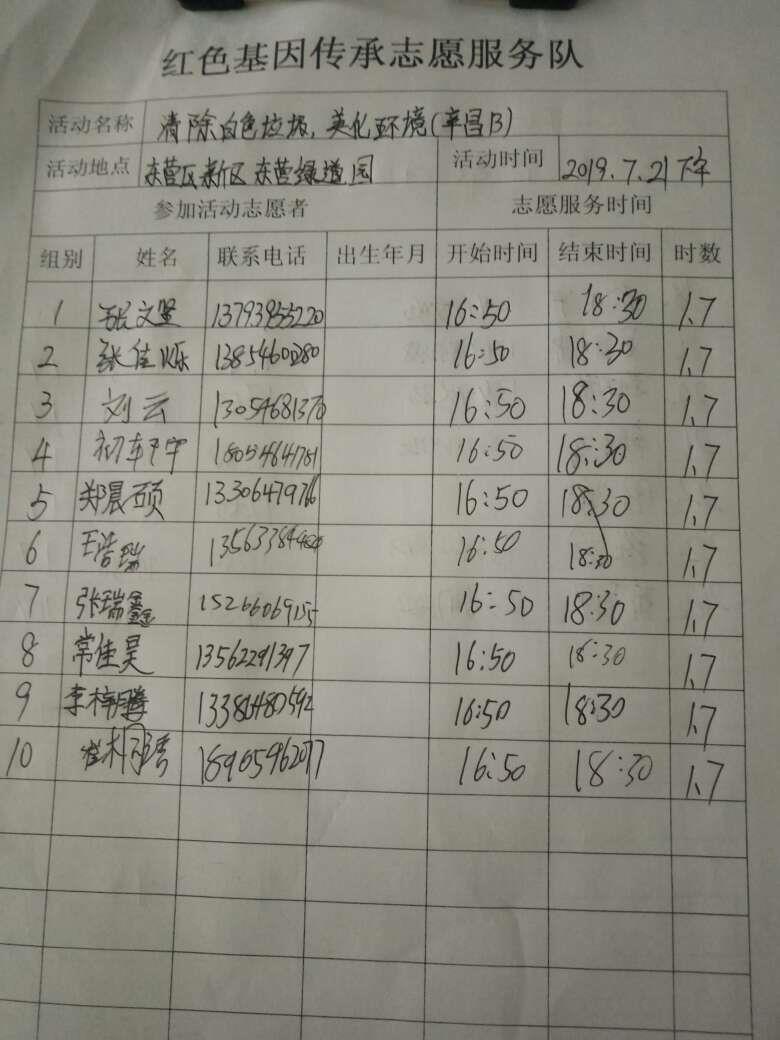 红色基因传承志愿服务队
活动名称 清除白色垃圾,美化环境(辛昌B)
活动地点 东营区新区 东营绿道园 活动时间 2019.7.21下午
参加活动志愿者 志愿服务时间
组别 姓名 联系电话 出生年月 开始时间 结束时间 时数
1 张文 13793955220 16:50 18:30 1.7
2 张佳烁 16:50 18:30 1.7
3 刘云 13054681370 16:50 18:30 1.7
4 初 16:50 18:30 1.7
5 郑晨硕 16:50 18:30 1.7
6 王浩瑞 16:50 18:30 1.7
7 张瑞鑫 15266069155 16:50 18:30 1.7
8 常佳昊 13562291397 16:50 18:30 1.7
9 李梓腾 16:50 18:30 1.7
10 16:50 18:30 1.7